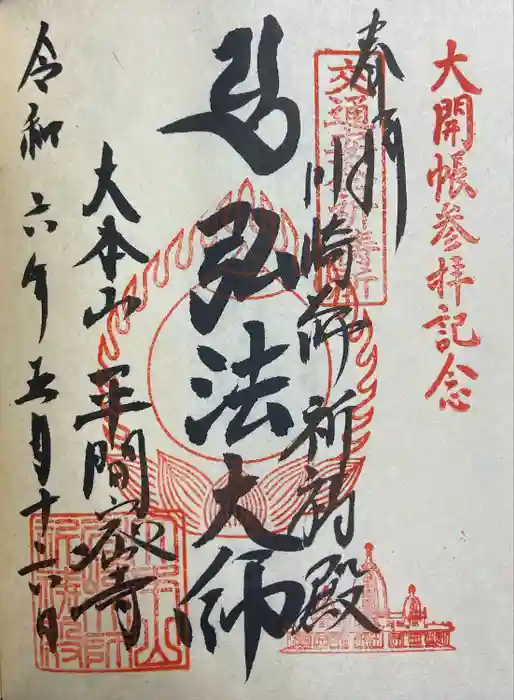 大開帳参拝記念
奉拝
交通安全
川崎師祈祷殿
弘法大師
大本山 平間寺
令和六年五月十六日